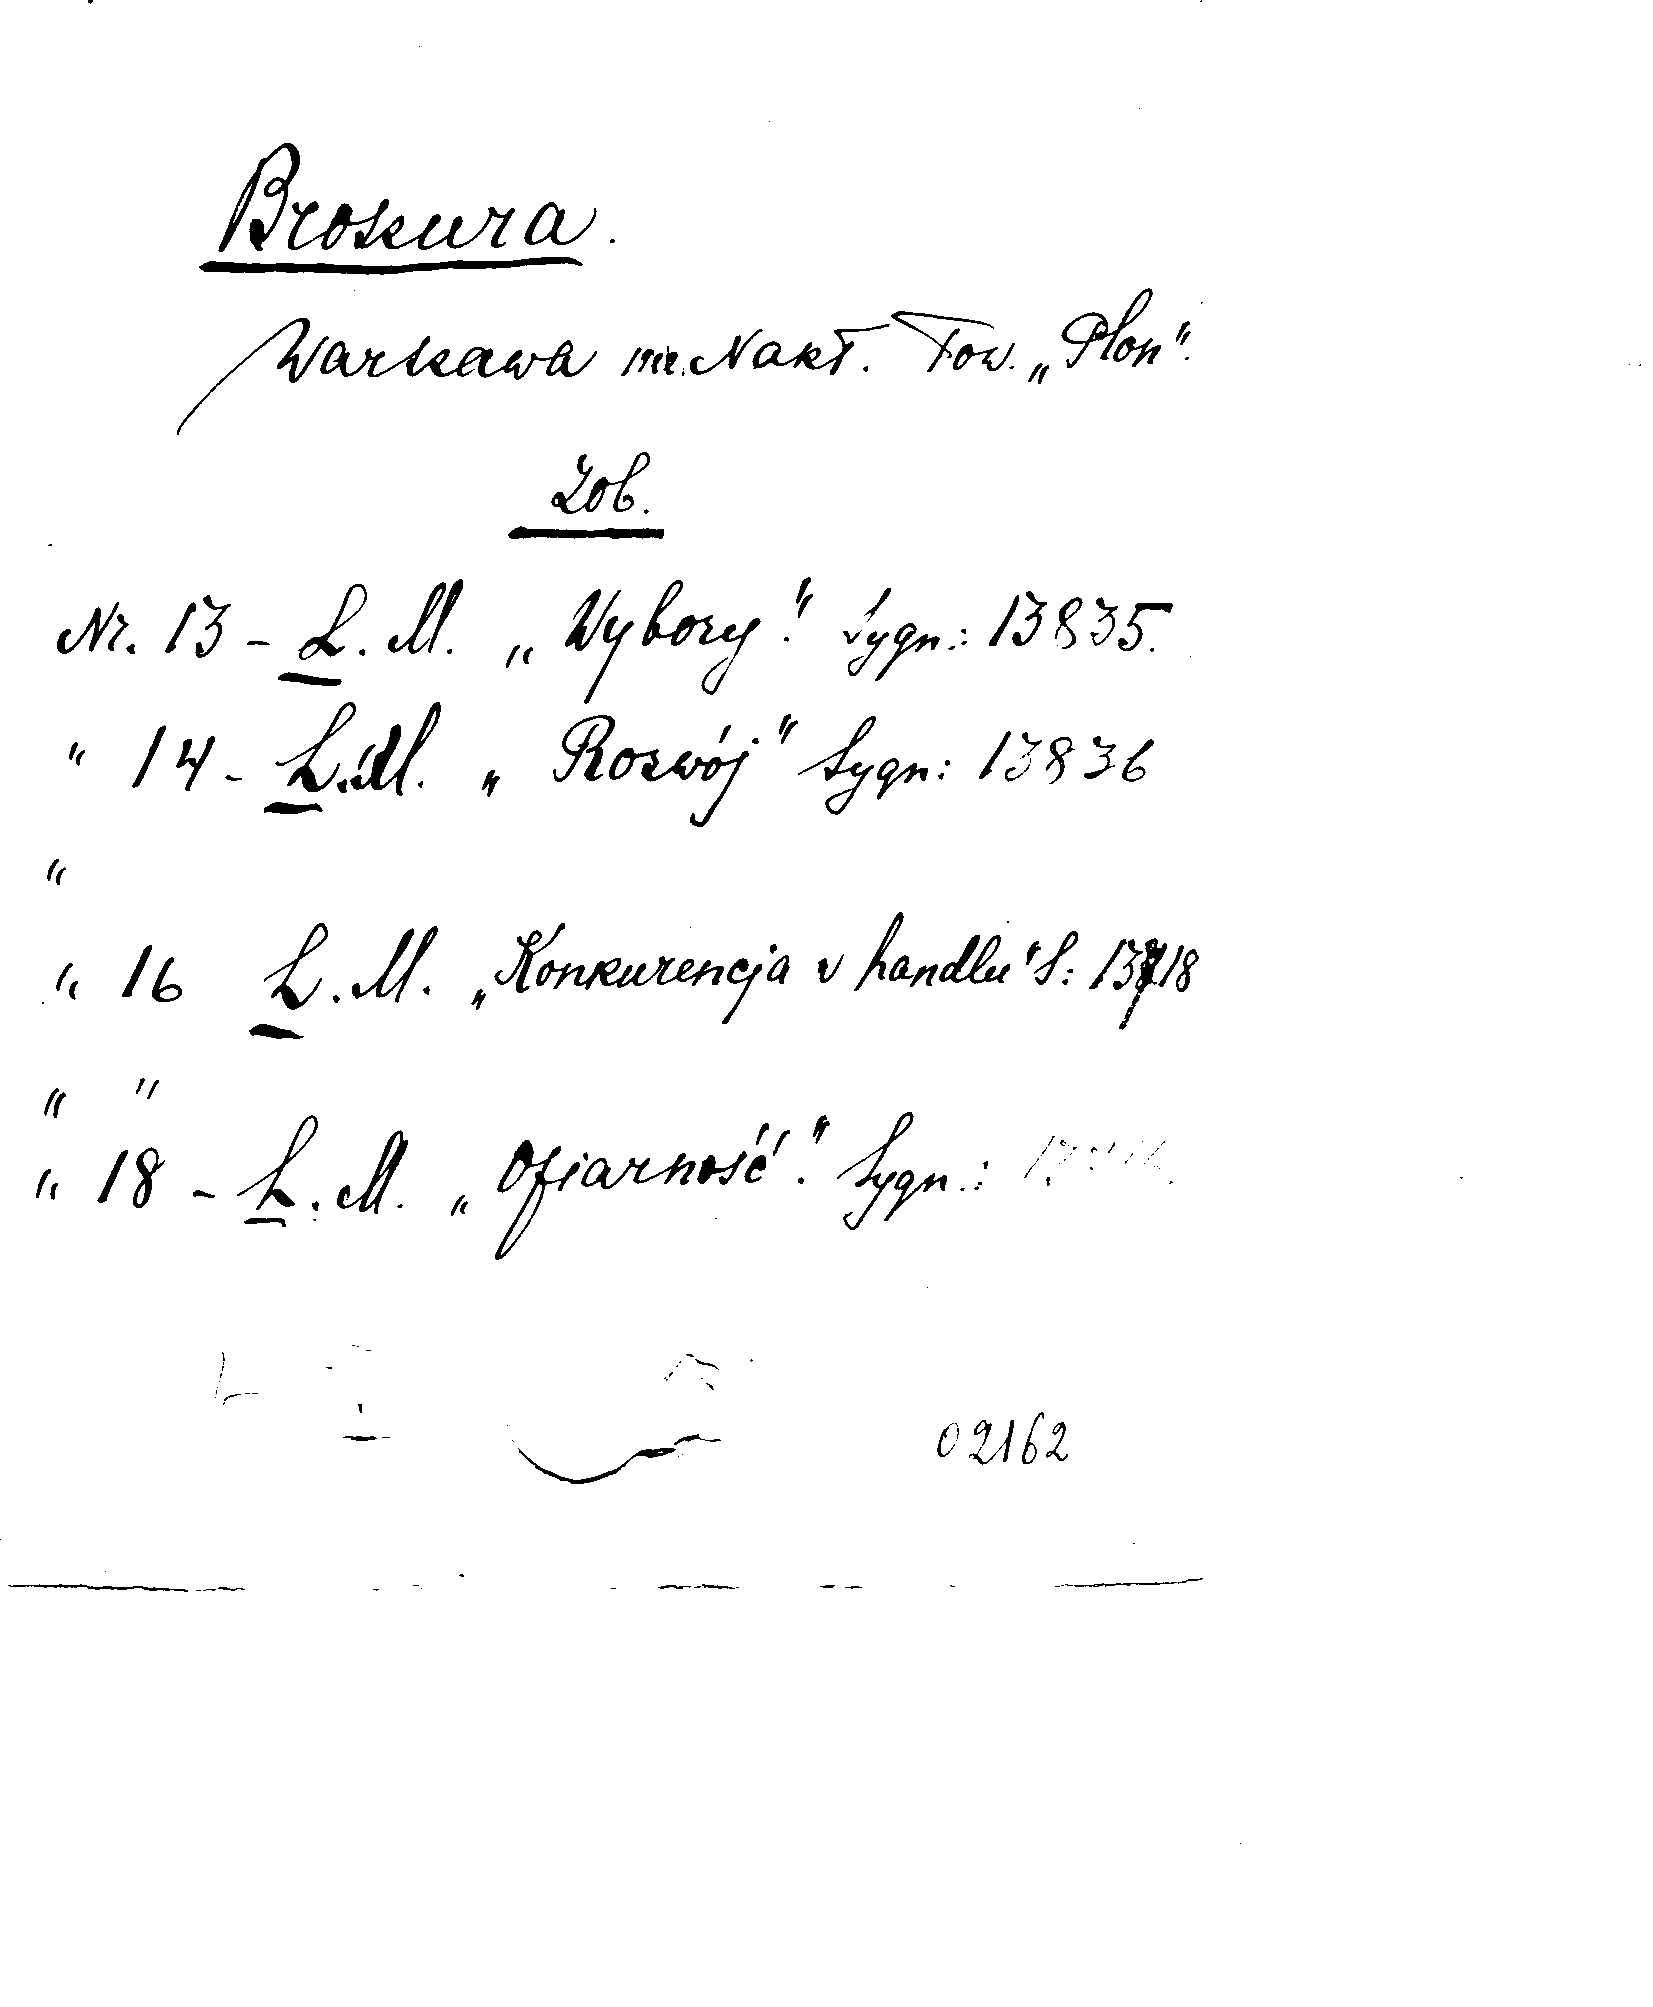 Broszura.
Warszawa Nakł. Tow. „Plon".
Zob.
Nr. 13 - L. M. „Wybory." Sygn.: 13835.
" 14 - L. M. „Rozwój" Sygn: 13836
"
" 16 L. M. „Konkurencja w handlu" S:
" "
" 18 - L. M. „Ofiarność." Sygn.:
02162